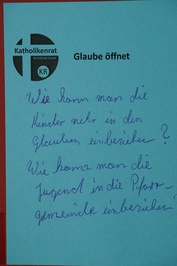 Katholikenrat
KR
Glaube öffnet
Wie kann man die
Kinder mehr in den
Glauben einbeziehen?
Wie kann man die
Jugend in die Pfarr-
gemeinde einbeziehen?